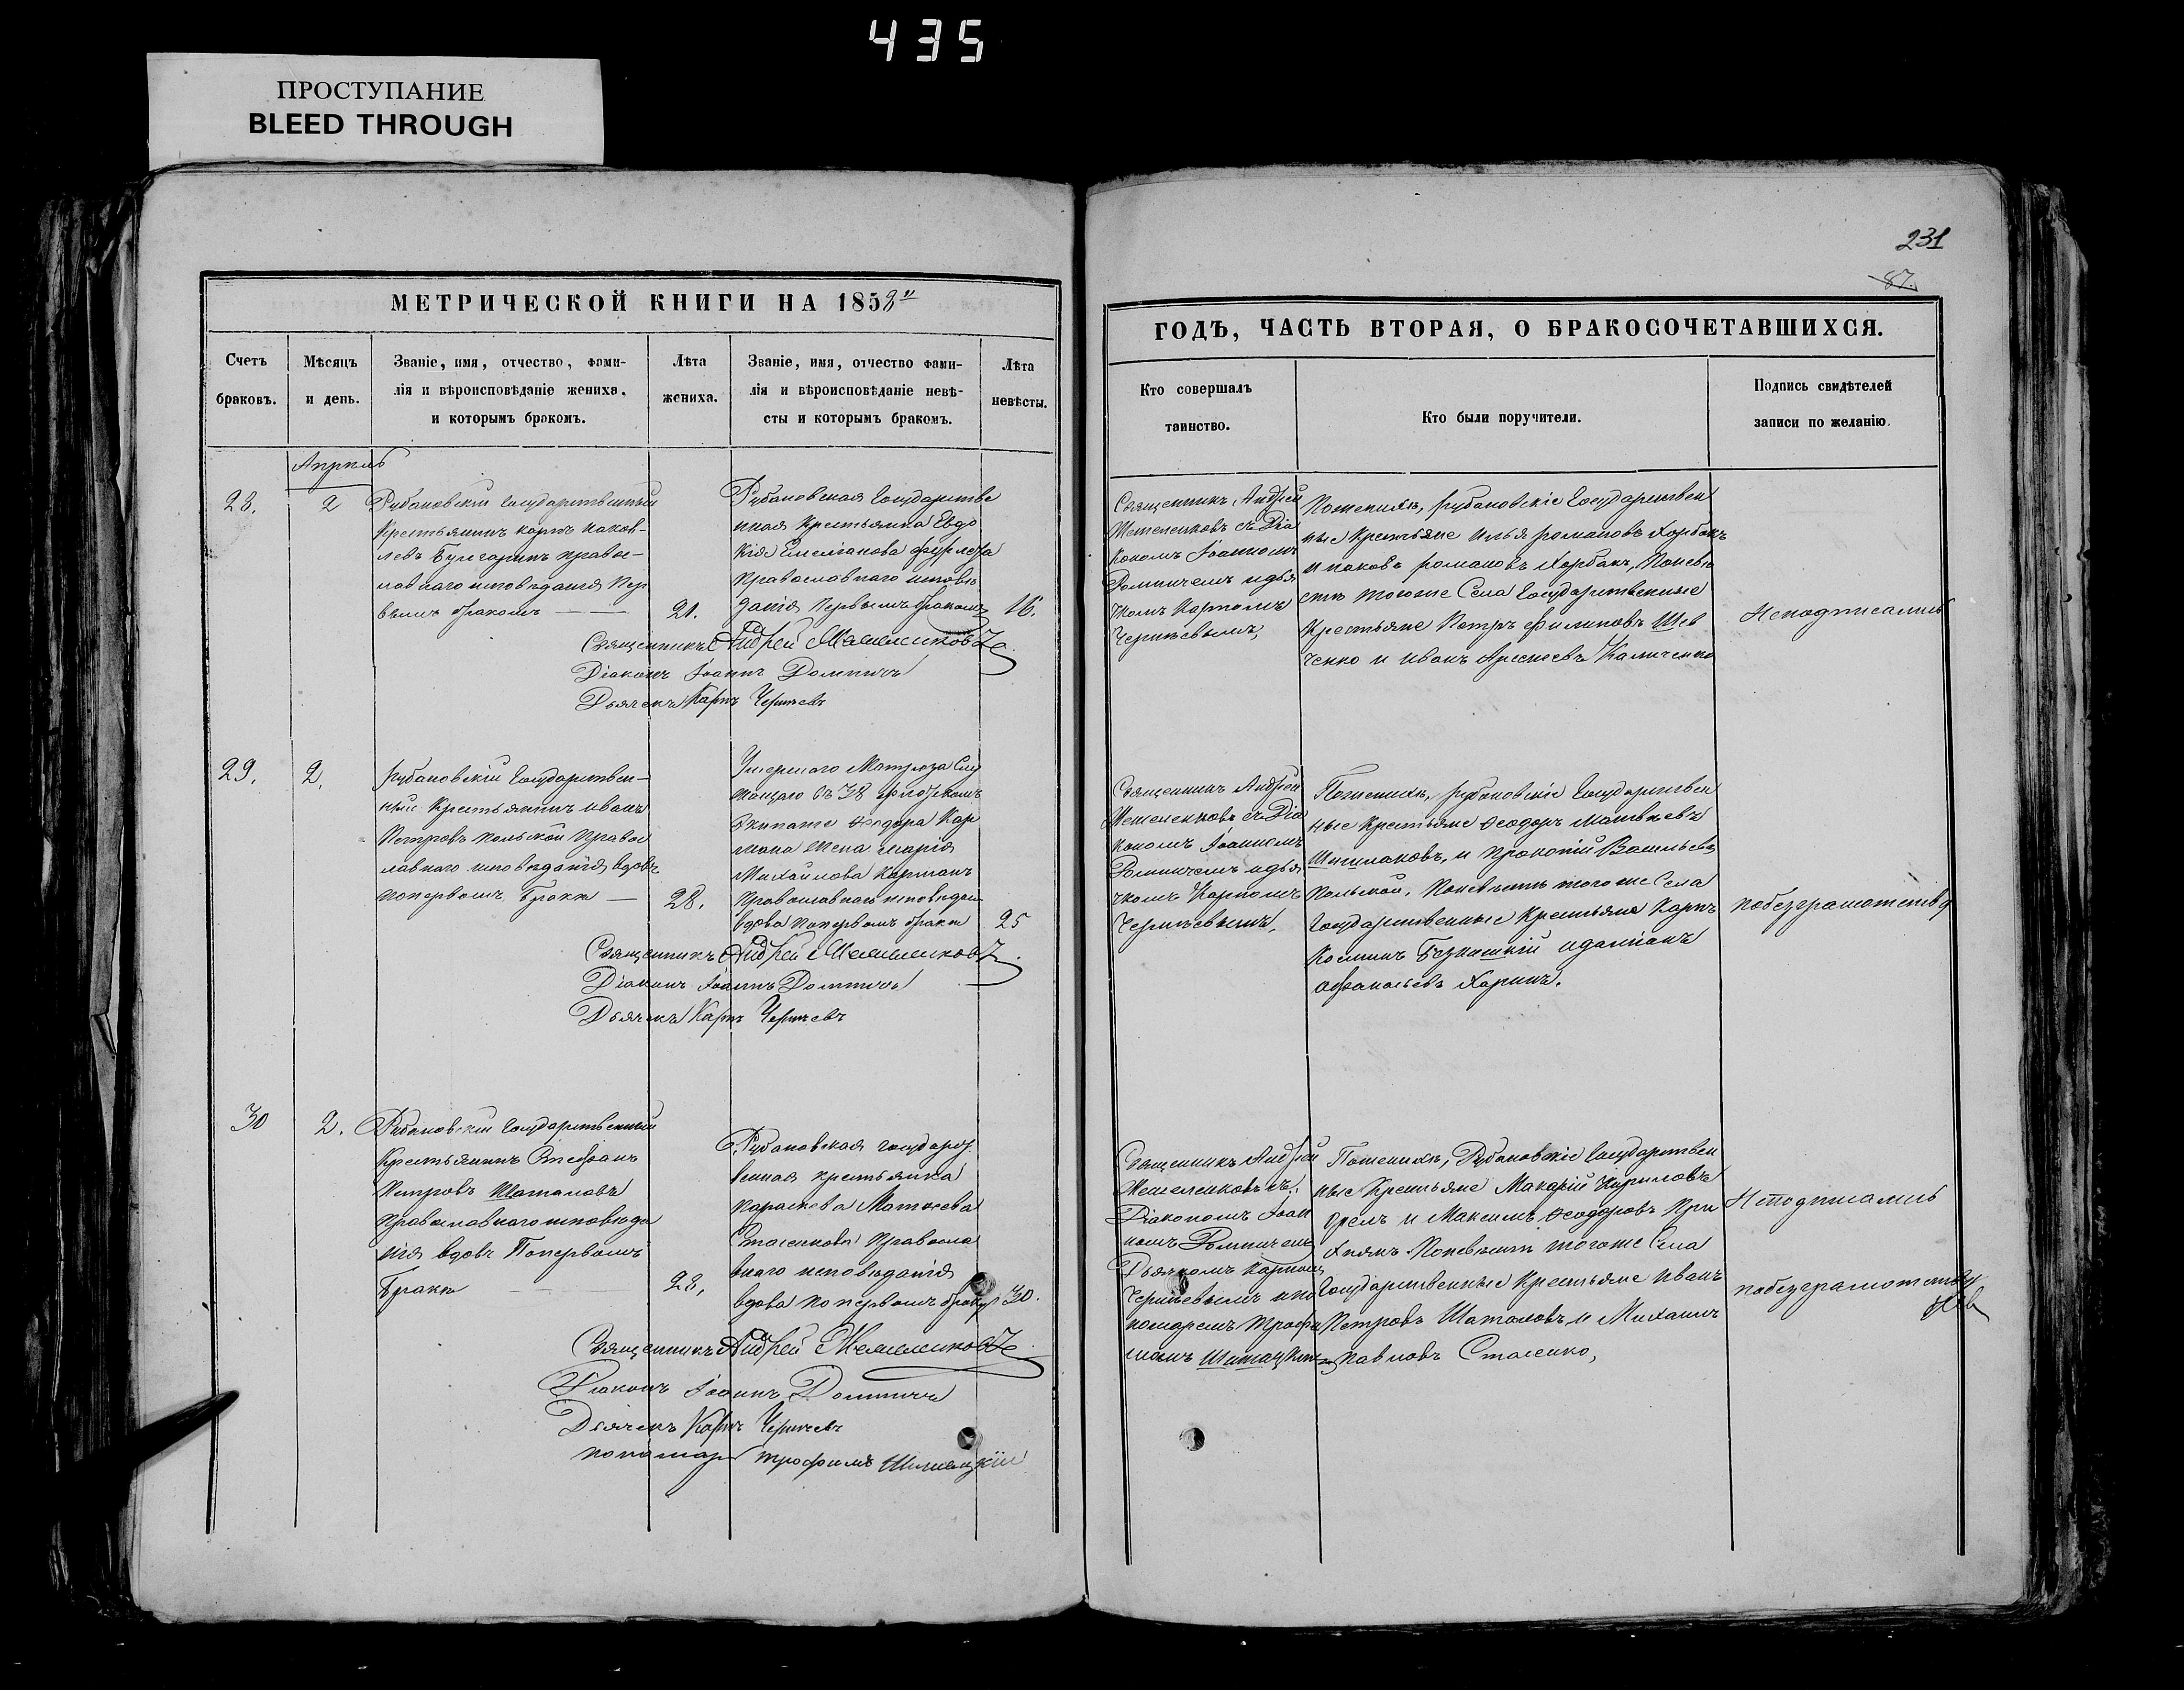 435
ПРОСТУПАНИЕ
BLEED THROUGH
МЕТРИЧЕСКОЙ КНИГИ НА 1858
Счетъ браковъ.
Мѣсяцъ и день.
Званіе, имя, отчество, фами-
лія и вѣроисповѣданіе жениха,
и которымъ бракомъ.
Лѣта жениха.
Званіе, имя, отчество фами-
лія и вѣроисповѣданіе невѣ-
сты и которымъ бракомъ.
Лѣта невѣсты.
Апрель
28.
2
Рубановскій Государственный
Крестьянинъ карпъ яков-
левъ Булгаринъ правос-
лавнаго исповѣданія Пер
вымъ бракомъ
21.
Рубановская Государстве
нная Крестьянка Евдо
кія Емеліанова
Православнаго исповѣ
данія Первымъ бракомъ
16.
Священникъ Андрей Мешленковъ
Діаконъ Іоаннъ
Дьячекъ Карпъ
29.
2.
рубановскій Государствен-
ный Крестьянинъ иванъ
Петровъ Польской Правос
лавнаго исповѣданія вдовъ
поперьвомъ Бракѣ
28.
Умершаго Матроза Слу
жащаго въ 38 флотскомъ
Экипаже Феодора Кар
мана жена Марія
Михайлова Карманъ
Православнаго исповѣдан
вдова поперьвомъ бракѣ
25
Священникъ Андрей Мешленковъ
Діаконъ Іоаннъ
Дьячекъ Карпъ
30
2.
Рубановскій Государственный
Крестьянинъ Стефанъ
Петровъ Шаталовъ
Православнаго исповѣда
нія вдовъ Поперьвомъ
Бракѣ
28,
Рубановская государ
венная крестьянка
Параскева Матвеева
Стасенкова Правосла
внаго исповѣданія
вдова поперьвомъ браку
30.
Священникъ Андрей Мешленковъ
Діаконъ Іоаннъ
Дьячекъ Карпъ
пономарь трофимъ
231
87.
ГОДЪ, ЧАСТЬ ВТОРАЯ, О БРАКОСОЧЕТАВШИХСЯ.
Кто совершалъ таинство.
Кто были поручители.
Подпись свидѣтелей
записи по желанію.
Священникъ Андрей
съ Діа
кономъ Іоанномъ
идья
чкомъ Карпомъ
Поженихѣ, рубановскіе Государствен
ные Крестьяне илья романовъ Хорбакъ
и яковъ романовъ Хорбакъ, Поневѣ
стѣ тогоже Села Государственные
Крестьяне Петръ филиповъ Шев
ченко и иванъ
Неподписались
Священникъ Андрей
съ Діа
кономъ Іоанномъ
идья
чкомъ Карпомъ
Поженихѣ, рубановскіе Государствен
ные Крестьяне Феодоръ Матвеевъ
и Прокопій Васильевъ
Польской. Поневѣстѣ тогоже Села
Государственные Крестьяне Карпъ
идаміанъ
Харинъ.
побезграмотству
Священникъ Андрей
съ
Діакономъ Іоан
номъ
Дьячкомъ Карпомъ
ипо
номаремъ трофи
момъ
Поженихѣ, Рубановскіе Государствен
ные Крестьяне Макарій Кириловъ
Орелъ и Максимъ Феодоровъ
Поневѣстѣ тогоже Села
Государственные крестьяне иванъ
Петровъ Шаталовъ и Михаилъ
Павловъ Стасенко,
Неподписались
побезграмотству